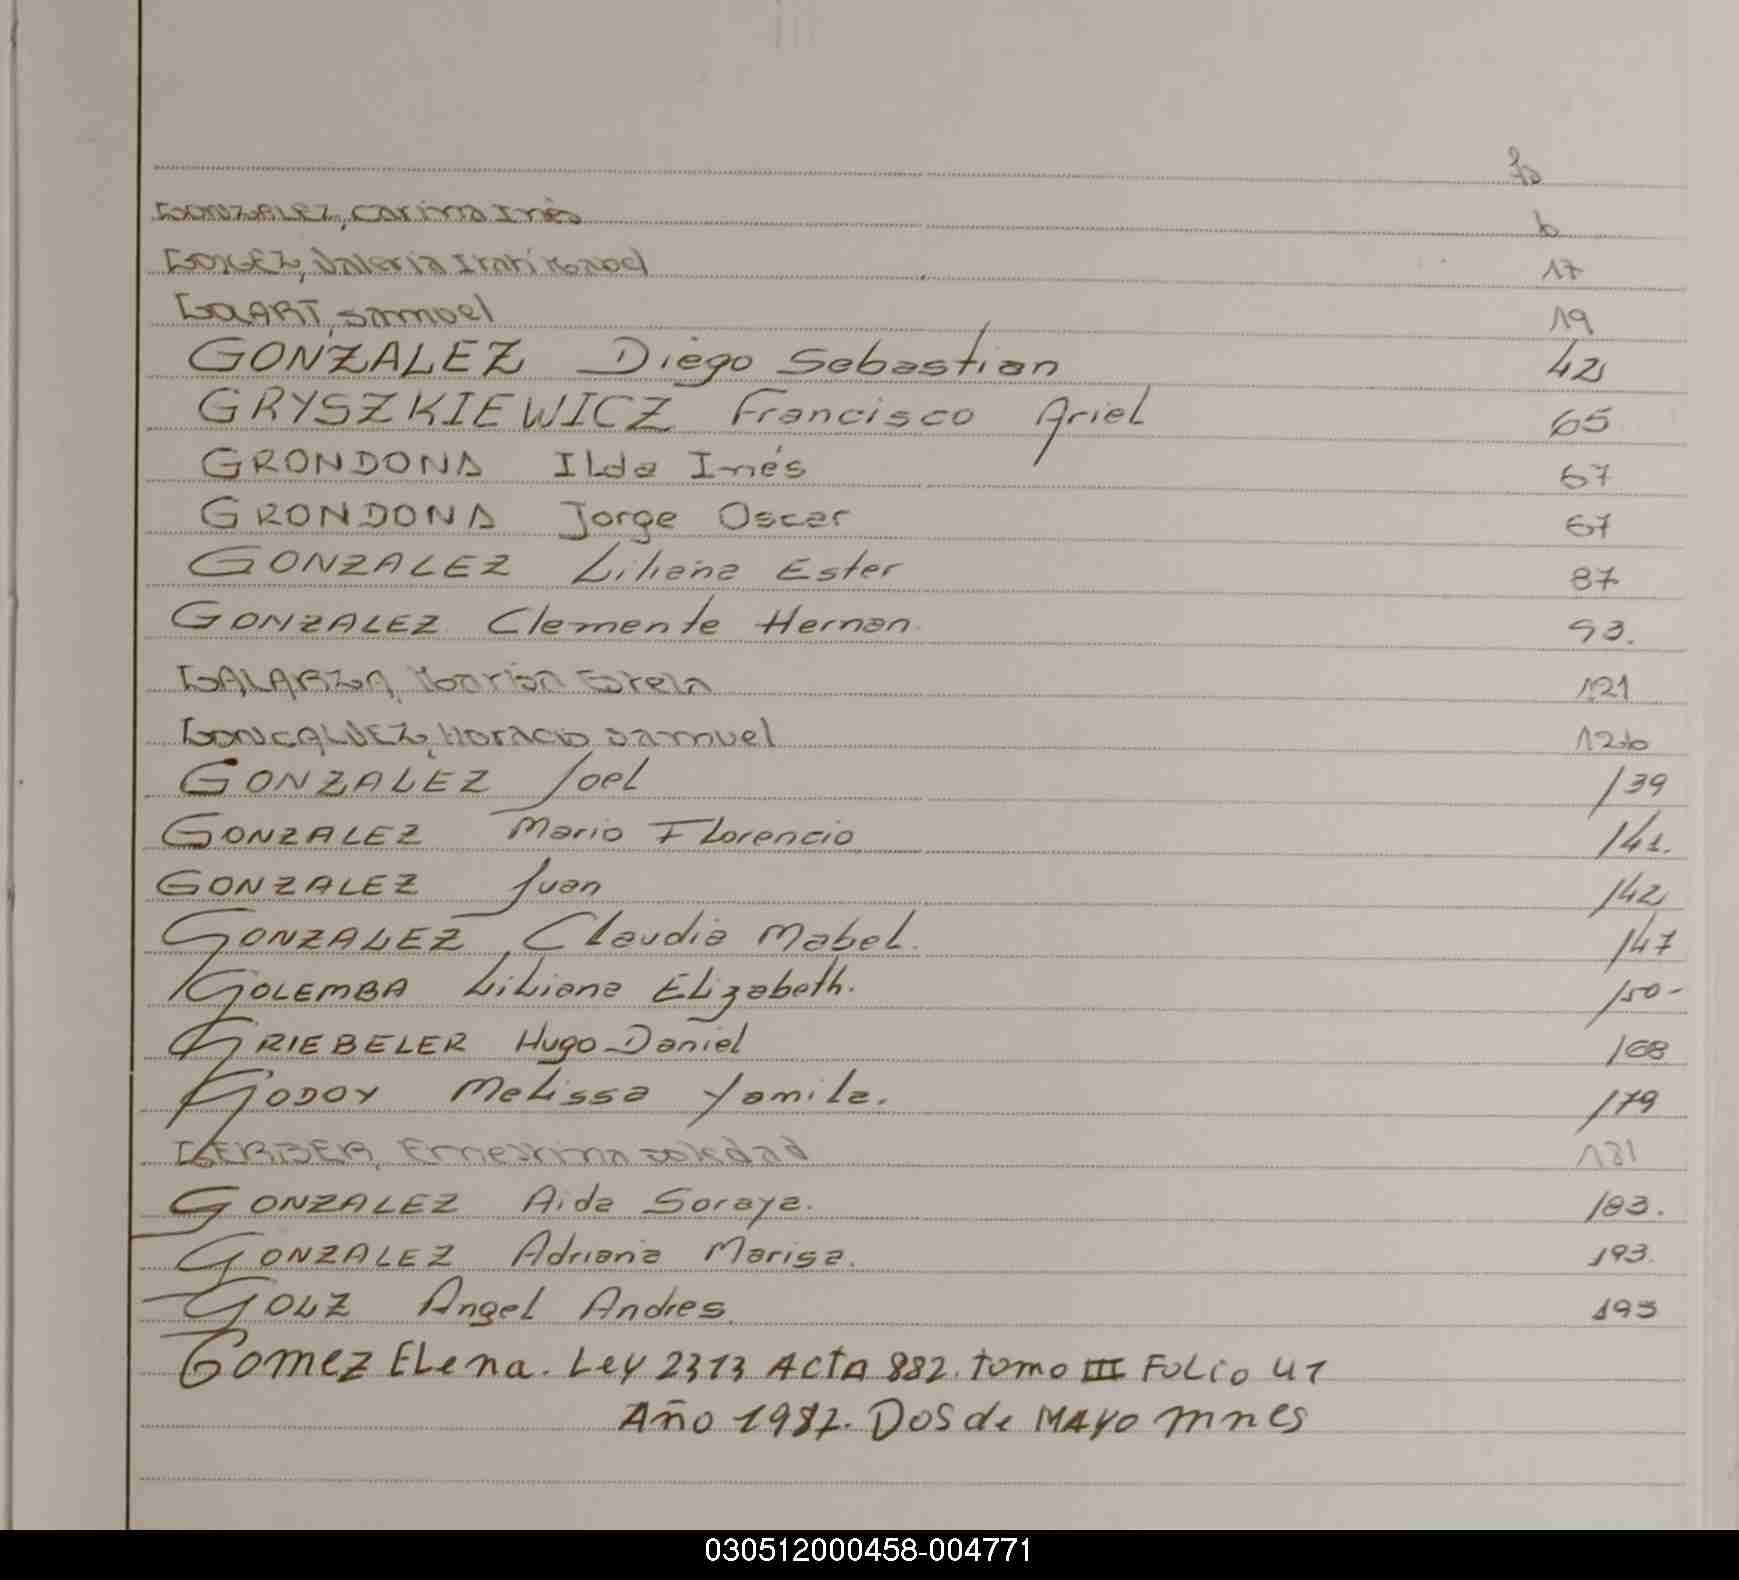 fo
GONZALEZ, Carina Inés 6
Valeria Itatí 17
GaART, Samuel 19
GONZALEZ Diego Sebastian 42
GRYSZKIEWICZ Francisco Ariel 65
GRONDONA Ilda Inés 67
GRONDONA Jorge Oscar 67
GONZALEZ Liliana Ester 87
GONZALEZ Clemente Hernan. 93.
GALARZA, Estela 121
GONCALVEZ, Horacio Samuel 126
GONZALEZ Joel 139
GONZALEZ Mario Florencio 141.
GONZALEZ Juan 142
GONZALEZ Claudia Mabel. 147
GOLEMBA Liliana Elizabeth. 150-
GRIEBELER Hugo Daniel 168
GODOY Melissa Yamila. 179
GERBER, Ernestina Soledad 181
GONZALEZ Aida Soraya. 183.
GONZALEZ Adriana Marisa. 193.
GOLZ Angel Andres. 195
Gomez ELena. Ley 2313 Acta 882. tomo III FoLio 41
Año 1982. Dos de MAYO mnes
030512000458-004771